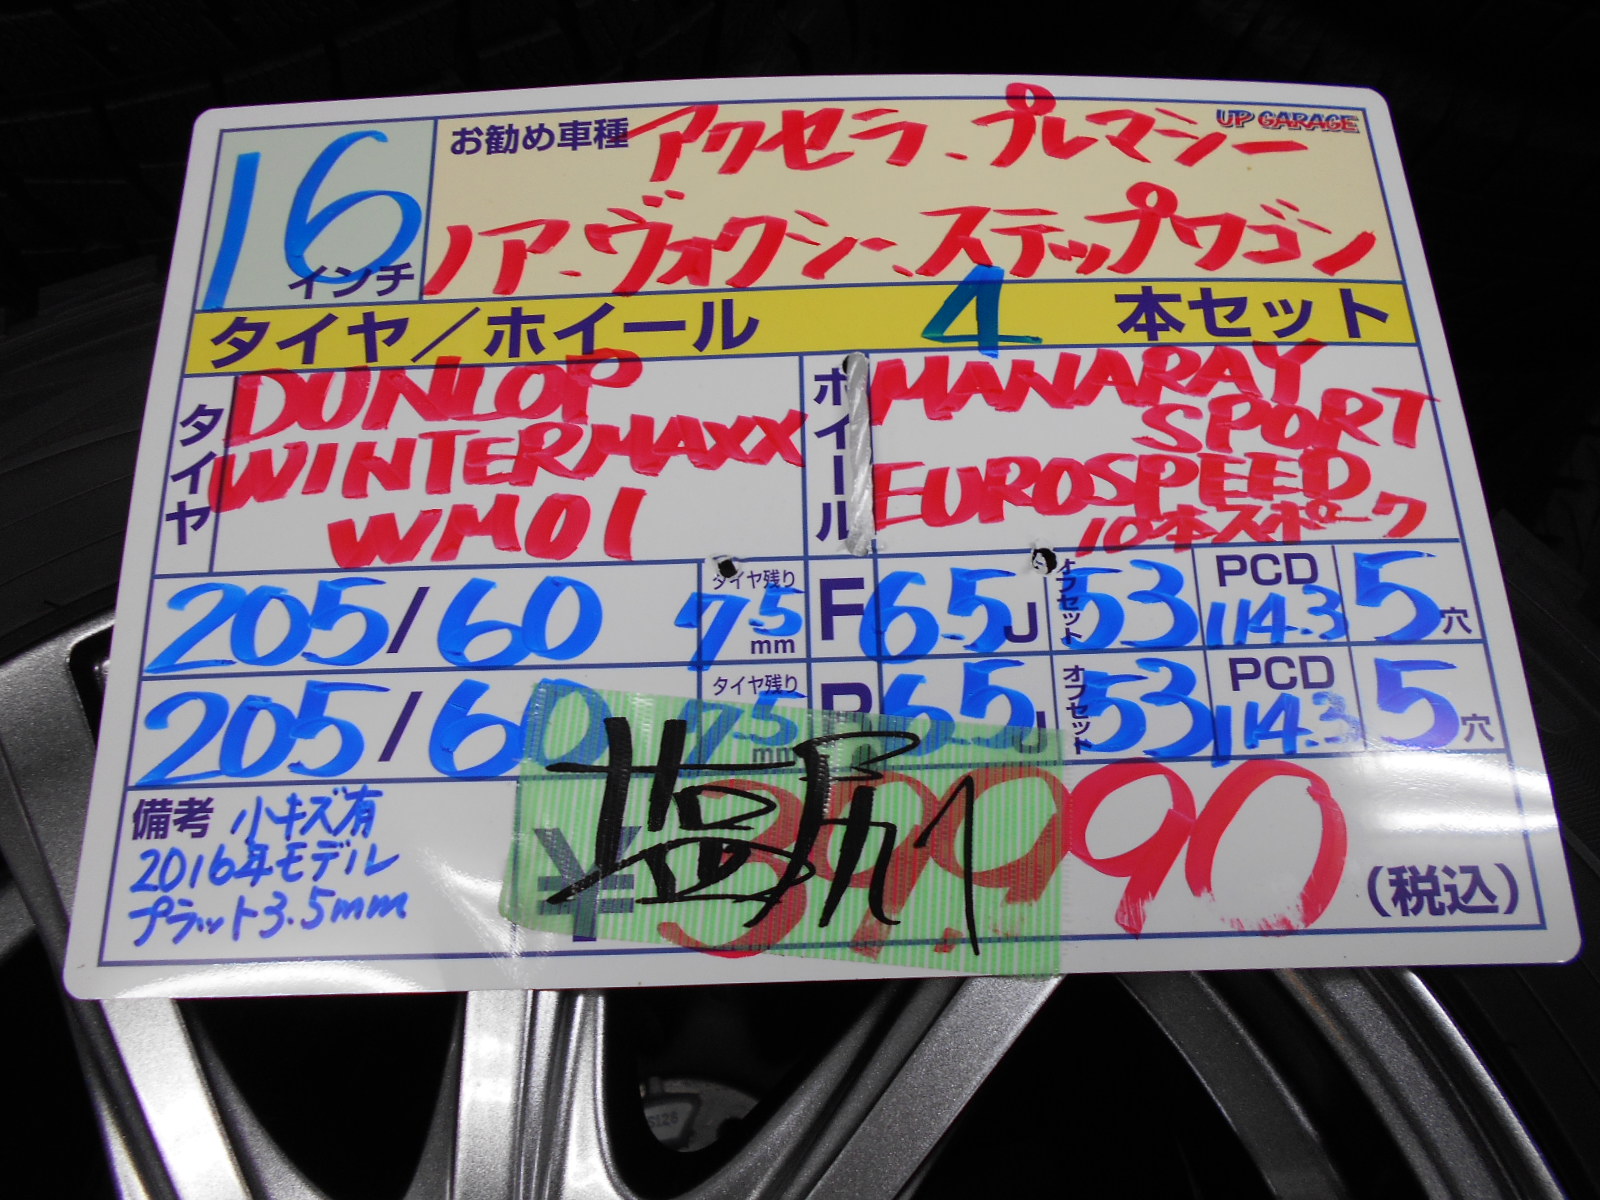 UP GARAGE
16インチ
お勧め車種 アクセラ、プレマシー
ノア、ヴォクシー、ステップワゴン
タイヤ/ホイール 4 本セット
タイヤ
DUNLOP
WINTERMAXX
WM01
ホイール
MANARAY
SPORT
EUROSPEED
10本スポーク
205/60 タイヤ残り 7.5 mm F 6.5 J オフセット 53 PCD 114.3 5 穴
205/60 タイヤ残り 7.5 mm R 6.5 J オフセット 53 PCD 114.3 5 穴
備考 小キズ有
2016年モデル
プラット3.5mm
¥ 39.990 (税込)